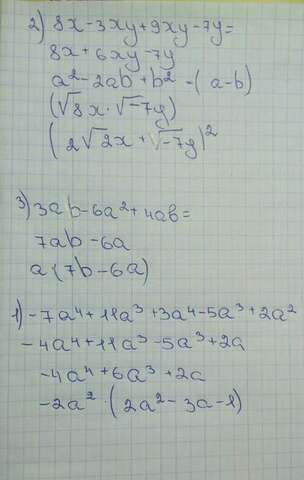 2) 8x-3xy+9xy-7y=
8x+6xy-7y
a²-2ab+b²-(a-b)
(√8x·√-7y)
(2√2x+√-7y)²
3) 3ab-6a²+4ab=
7ab-6a
a(7b-6a)
1) -7a⁴+11a³+3a⁴-5a³+2a²
-4a⁴+11a³-5a³+2a
-4a⁴+6a³+2a
-2a²·(2a²-3a-1)